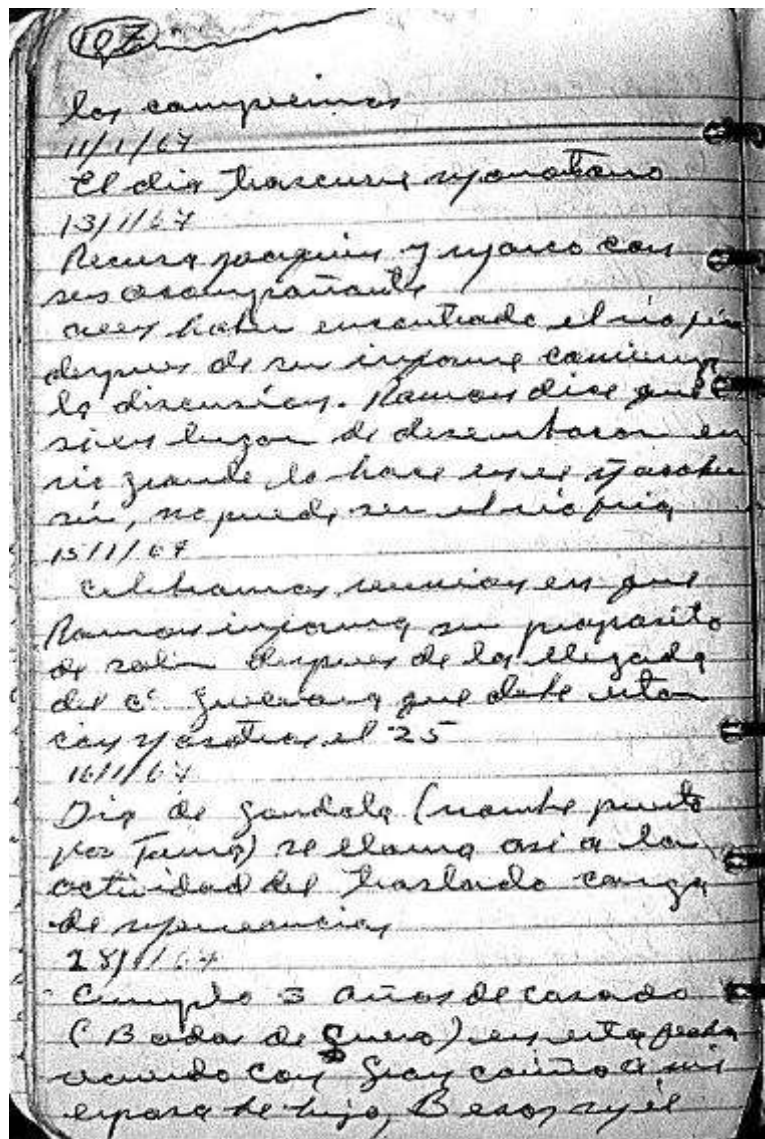 107
los campesinos
11/1/67
El dia trascurre monotono
13/1/67
Joaquin y Marco con
sus acompañante
creen haber encontrado el rio
despues de su informe comienza
la discusión. Ramon dice que
si en lugar de desembocar en
rio grande lo hace en el
no puede ser el rio
15/1/67
celebramos reunion en que
Ramon informa su proposito
de salir despues de la llegada
del c. Guevara que debe estar
con nosotros el 25
16/1/67
Dia de gondola (nombre puesto
por Tuma) se llama asi a la
actividad del traslado carga
de mercancias
18/1/67
Cumplo 3 años de casado
(Bodas de Cuero) en esta fecha
recuerdo con gran cariño a mi
esposa he hijo, Besos